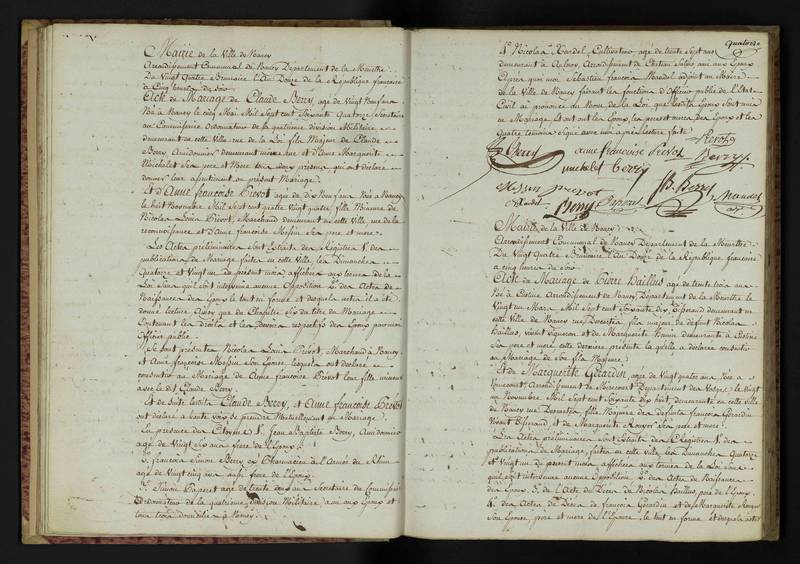 Mairie de la Ville de Nancy
Arrondissement Communal de Nancy Département de la Meurthe
Du Vingt Quatre Brumaire l'An Douze de la République française
à Cinq heures du Soir
Acte de Mariage de Claude Berry, agé de Vingt Neuf ans
Né à Nancy le cinq Mai Mil Sept cent Soixante Quatorze Secrétaire
au Commissaire ordonnateur de la quatrieme division Militaire
demeurant en cette Ville rue de la fils Majeur de Claude
Berry Amidonnier demeurant même rue et d'Anne Marguerite
Michelet Son pere et Mere tous deux présens, qui ont déclaré
donner leur assentiment au présent Mariage.
Et d'Anne françoise Prevot agée de dix Neuf ans Née à Nancy
le huit Novembre Mil Sept cent quatre Vingt quatre fille Mineure de
Nicolas Louis Prevot, Marchand demeurant en cette Ville rue de la
reconnoissance et d'Anne françoise Messin Ses pere et mere.
Les Actes préliminaires Sont Extraits des Registres 1° des
publications de Mariage faites en cette Ville, les Dimanches
Quatorze et Vingt un du présent mois affichées aux termes de la
Loi Sans qu'il soit intervenu aucune Opposition 2° des Actes de
Naissances des Epoux le tout en forme et desquels actes il a été
donné lecture Ainsi que du Chapitre Six du titre du Mariage
Contenant les droits et les devoirs respectifs des Epoux par moi
Officier public.
Se sont présentés Nicolas Louis Prevot, Marchand à Nancy
et Anne françoise Messin Son Epouse lesquels ont déclaré
consentir au Mariage de Anne françoise Prevot leur fille mineure
avec le dit Claude Berry.
Et de suite lesdits Claude Berry, et Anne françoise Prevot
ont déclaré à haute voix se prendre Mutuellement en Mariage
En présence des Citoyens 1° Jean Baptiste Berry, Amidonnier
agé de Vingt Six ans frere de l'Epoux.
2° françois Simon Berry ex Pharmacien à l'Armée du Rhin
agé de Vingt cinq ans aussi frere de l'Epoux
3° Simon Paporet agé de trente deux ans Secrétaire du Commissaire
Ordonnateur de la quatrieme division Militaire ami aux Epoux et
tous trois domiciliés à Nancy.
quatorze
4° Nicolas Mardel Cultivateur agé de trente Sept ans
demeurant à Arrondissement de Château Salins, ami aux Epoux
Apres quoi moi Sebastien françois Mandel adjoint au Maire
de la Ville de Nancy faisant les fonctions d'Officier public de l'Etat
Civil ai prononcé au Nom de la Loi que lesdits Epoux Sont unis
en Mariage Et ont les Epoux, les peres et meres des Epoux et les
Quatre temoins Signé avec moi après lecture faite
C Berry anne françoise Prevot Prevot
michelet berry Berry
Messin prevot B. Berry
Mardel Berry Paporet Mandel
adj.
Mairie de la Ville de Nancy
Arrondissement Communal de Nancy Département de la Meurthe
Du Vingt Quatre Brumaire l'An Douze de la République française
à cinq heures du Soir
Acte de Mariage de Pierre Bailleus agé de trente trois ans
Né à Arrondissement de Nancy Département de la Meurthe le
Vingt un Mars Mil Sept cent Soixante dix Tisserand demeurant en
cette Ville de Nancy rue fils majeur de défunt Nicolas
Bailleus, vivant vigneron et de Marguerite demeurante à
Son pere et mere cette derniere présente laquelle a déclaré consentir
au Mariage de Son fils Majeur.
Et de Marguerite Gerardin agée de Vingt quatre ans Née à
Arrondissement de Mirecourt Département des Vosges le Vingt
un Novembre Mil Sept cent Soixante dix huit, demeurante en cette Ville
de Nancy rue fille Majeure des défunts françois Gerardin
Vivant Tisserand et de Marguerite Rouyer Ses pere et mere.
Les Actes préliminaires Sont Extraits des Registres 1° des
publications de Mariage, faites en cette Ville, les Dimanches Quatorze
et Vingt un du présent mois affichées aux termes de la Loi Sans
qu'il soit intervenu aucune Opposition 2° des Actes de Naissances
des Epoux. 3° de l'Acte de Deces de Nicolas Bailleus, pere de l'Epoux
4° des Actes de Deces de françois Gerardin et de Marguerite Rouyer
Son Epouse, pere et mere de l'Epouse. le tout en forme et desquels actes